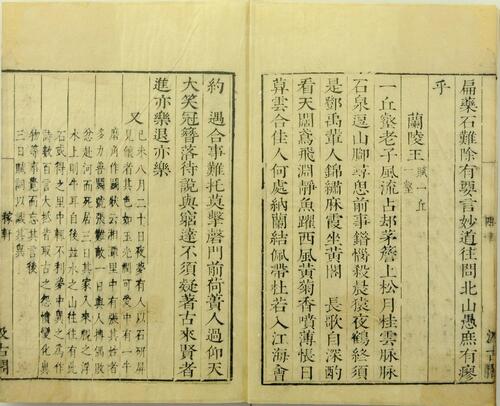 扁藥石難除有要言妙道往問北山愚庶有瘳
乎
蘭陵王 賦一丘一壑
一丘壑老子風流占却茅簷上松月桂雲脈脈
石泉逗山脚尋思前事錯惱殺晨猿夜鶴終須
是鄧禹輩人錦繡麻霞坐黃閣 長歌自深酌
看天闊鳶飛淵靜魚躍西風黃菊香噴薄悵日
暮雲合佳人何處紉蘭結佩帶杜若入江海曾
約 遇合事難托莫擊磬門前荷蕢人過仰天
大笑冠簪落待說與窮達不須疑著古來賢者
進亦樂退亦樂
又 己未八月二十日夜夢有人以石研屏
見饟者其色如玉光潤可愛中有一牛
磨角作鬭狀云湘潭里中有張其姓者
多力善鬭號張難敵一日與人搏偶敗
忿赴河而死居三日其家人來視之浮
水上則牛耳自後並水之山往往有此
石或得之里中輒不利夢中異之為作
詩數百言大抵皆取古之怨憤變化異
物等事覺而忘其言後
三日賦詞以識其異
稼軒
汲古閣